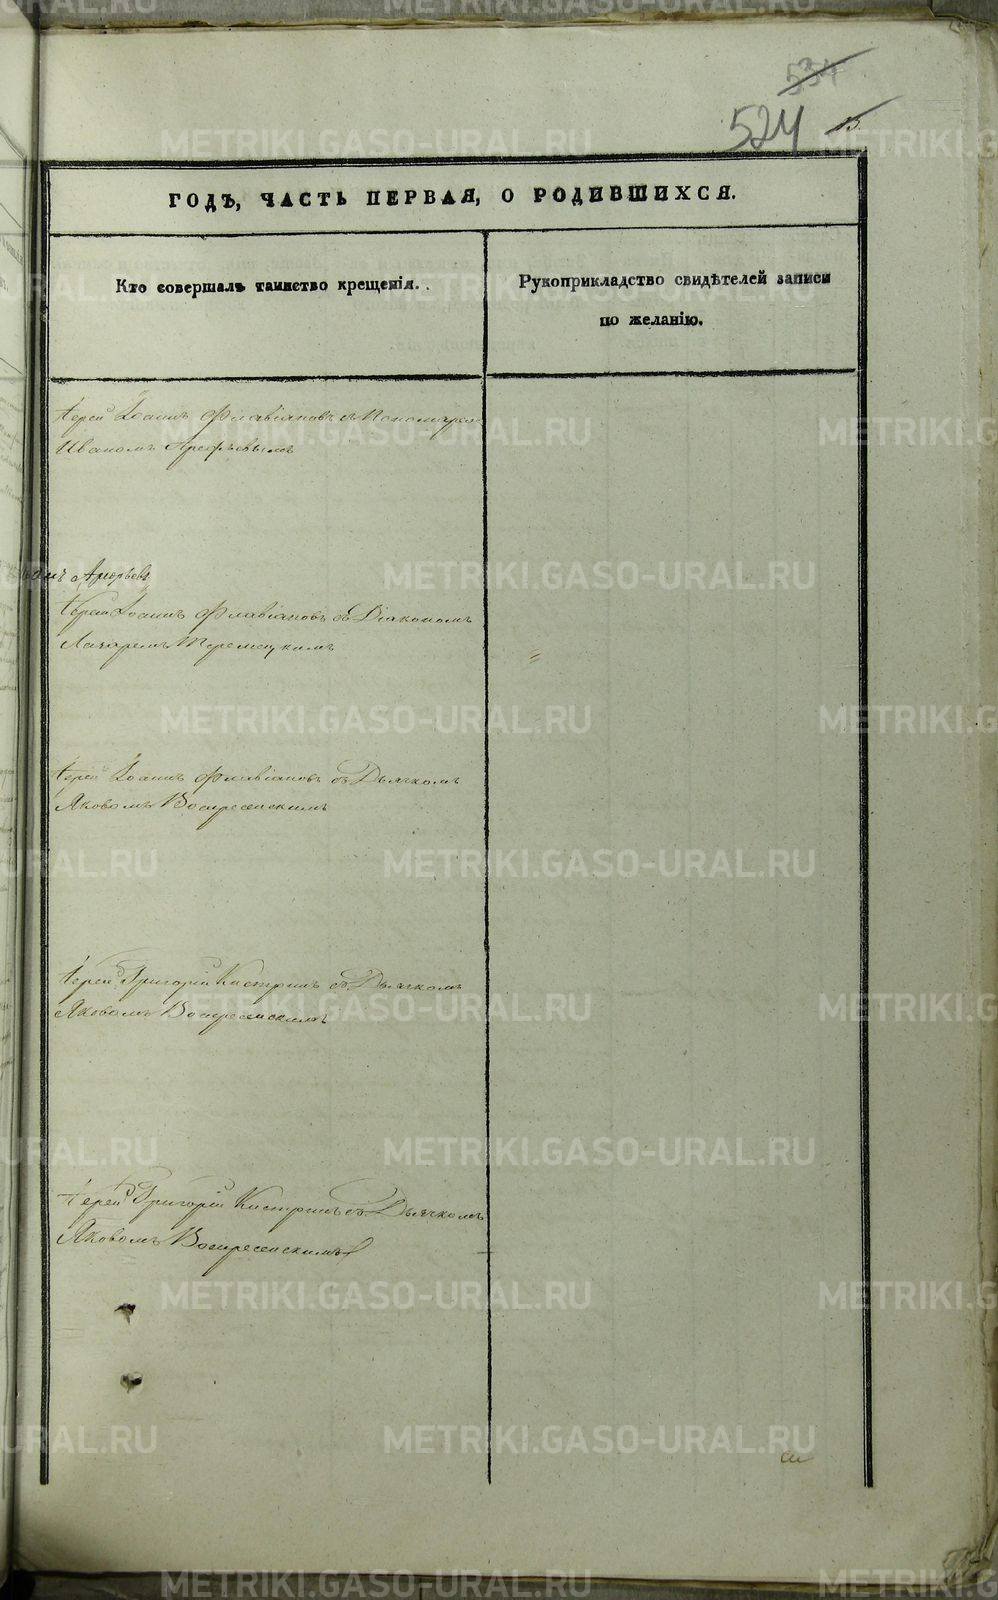 534
524 13
ГОДЪ, ЧАСТЬ ПЕРВАЯ, О РОДИВШИХСЯ.
Кто совершалъ таинство крещенія.
Рукоприкладство свидѣтелей записи
по желанію.
Іерей Іоаннъ Флавіановъ съ Пономаремъ
Иваномъ Арефьевымъ
Іерей Іоаннъ Флавіановъ съ Діакономъ
Лазаремъ
Іерей Іоаннъ Флавіановъ съ Дьячкомъ
Яковомъ Воскресенскимъ
Іерей Григорій Кистринъ съ Дьячкомъ
Яковомъ Воскресенскимъ
Іерей Григорій Кистринъ съ Дьячкомъ
Яковомъ Воскресенскимъ
METRIKI.GASO-URAL.RU